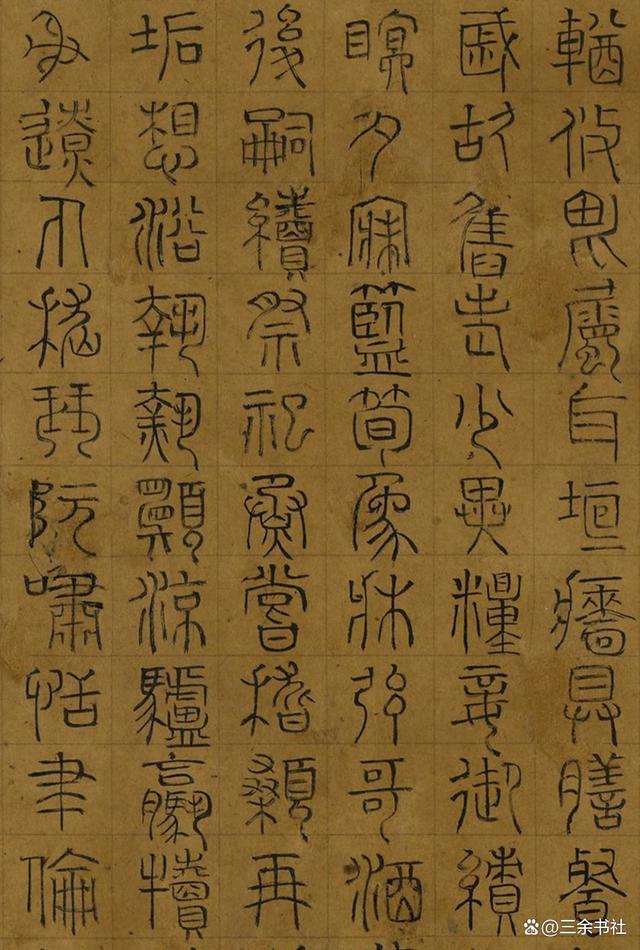 輶攸畏屬耳垣牆具膳餐
戚故舊老少異糧妾御績
瞑夕寐藍筍象牀弦哥酒
後嗣續祭祀烝嘗稽顙再
垢想浴執熱願涼驢騾犢
射遼丸嵇琴阮嘯恬聿倫
三余书社